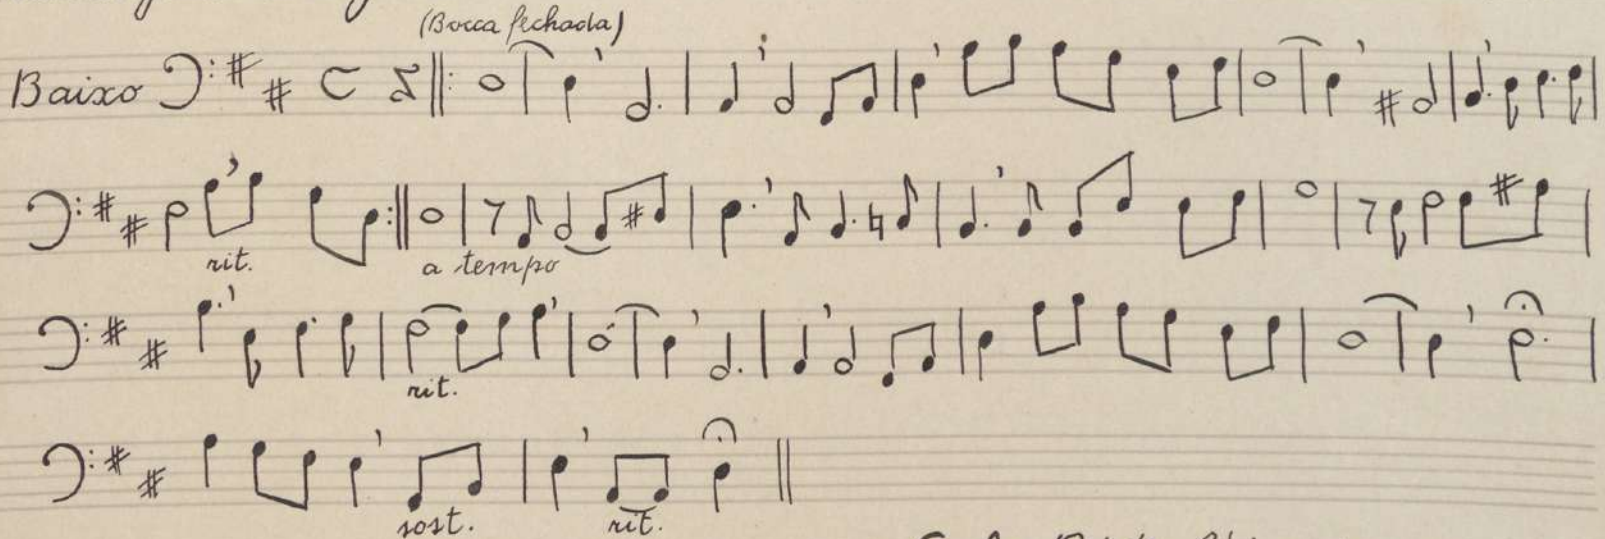 (Bocca fechada)
Baixo
rit.
a tempo
rit.
sost.
rit.